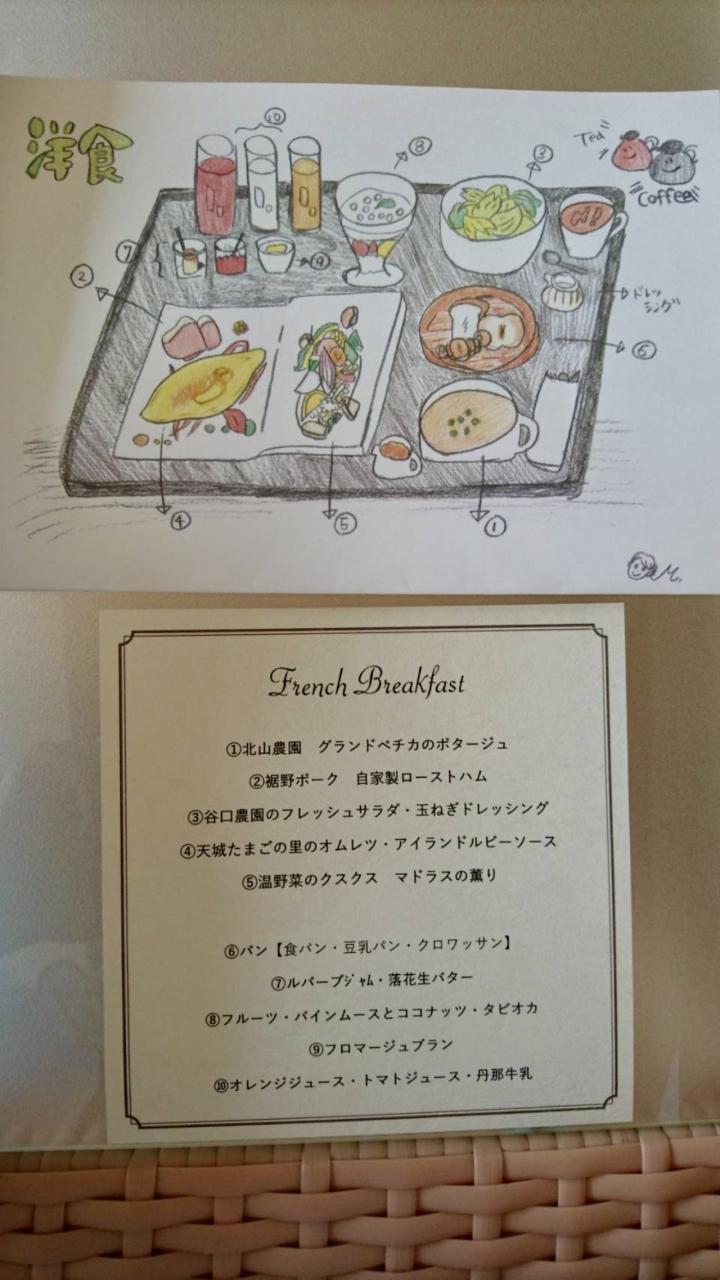 洋食
⑩
⑧
③
Tea
Coffee
⑦
⑨
②
ドレッ
シング
⑥
④
⑤
①
French Breakfast
①北山農園　グランドペチカのポタージュ
②裾野ポーク　自家製ローストハム
③谷口農園のフレッシュサラダ・玉ねぎドレッシング
④天城たまごの里のオムレツ・アイランドルビーソース
⑤温野菜のクスクス　マドラスの薫り
⑥パン【食パン・豆乳パン・クロワッサン】
⑦ルバーブジャム・落花生バター
⑧フルーツ・パインムースとココナッツ・タピオカ
⑨フロマージュブラン
⑩オレンジジュース・トマトジュース・丹那牛乳